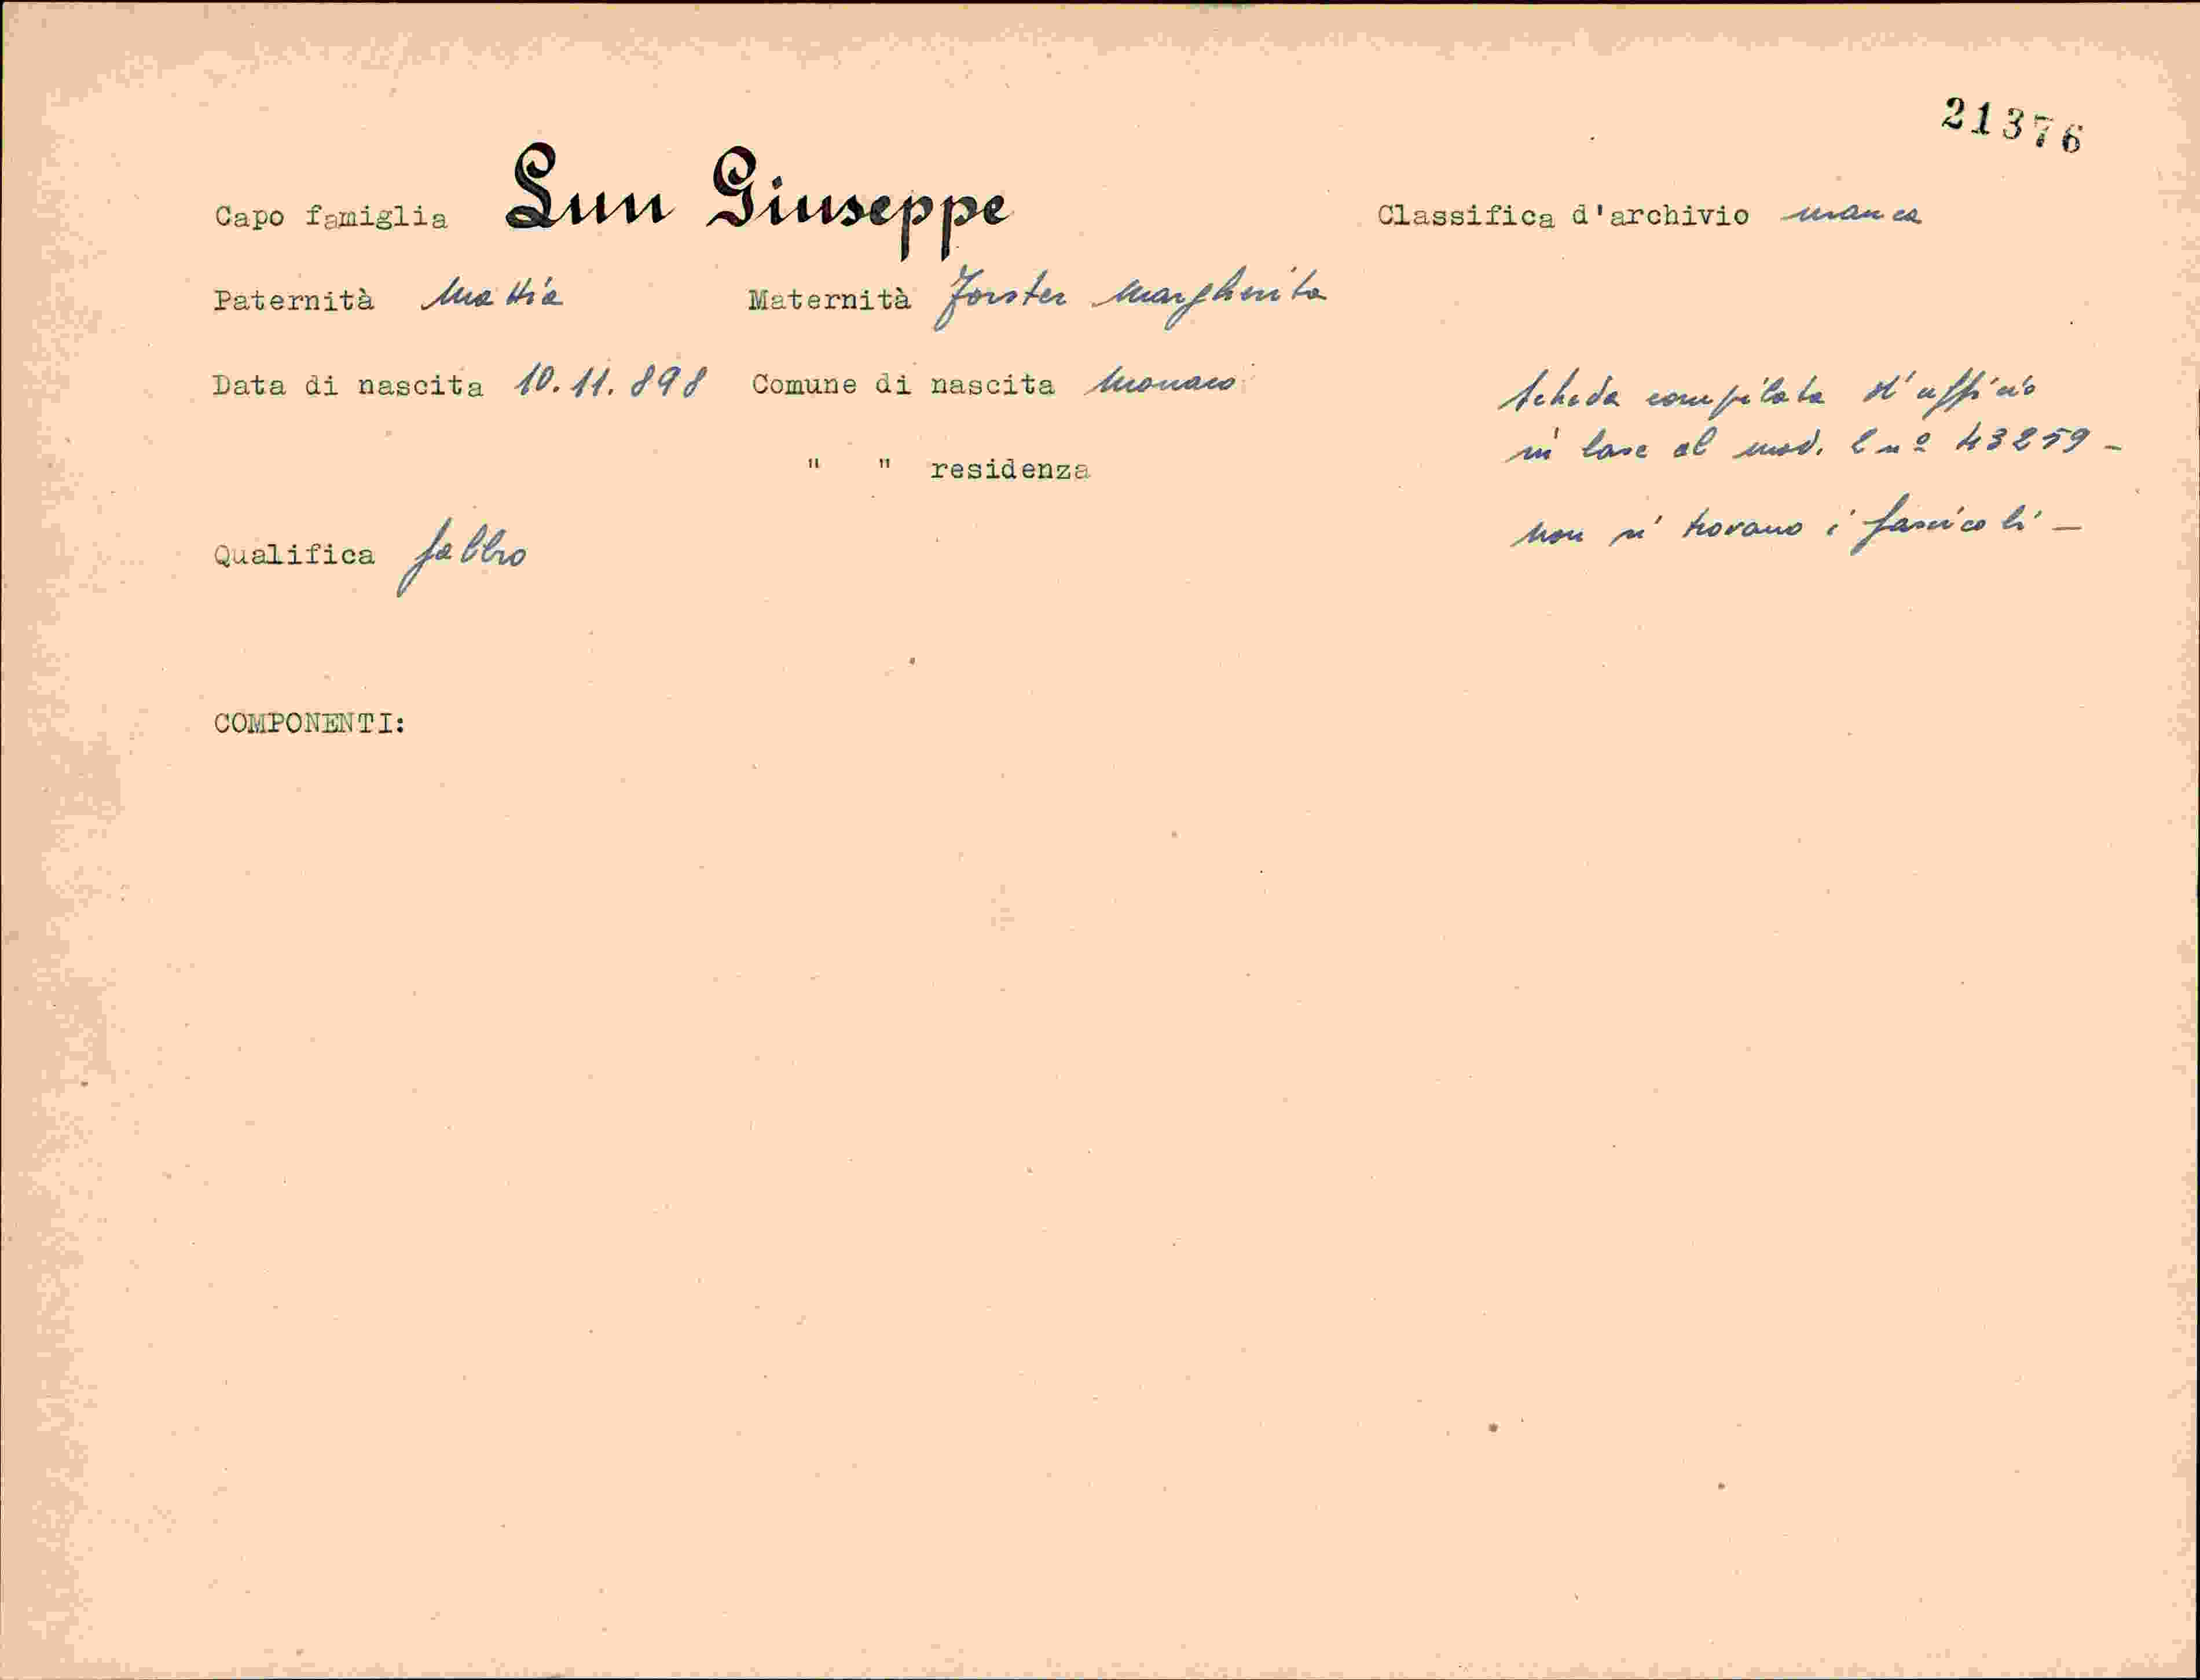 21376
Capo famiglia Lun Giuseppe Classifica d'archivio manca
Paternità Mattia Maternità Forster Margherita
Data di nascita 10.11.898 Comune di nascita Monaco
" " residenza
Qualifica fabbro
Scheda compilata d'ufficio
in base al mod. E nº 43259 -
Non si trovano i fascicoli -
COMPONENTI: